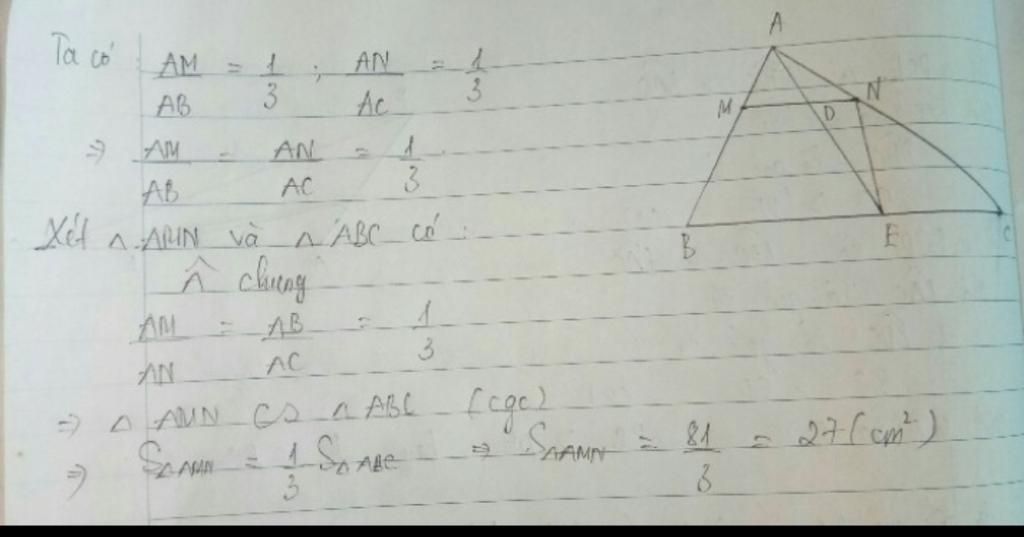 Ta có: AM/AB = 1/3 ; AN/AC = 1/3
⇒ AM/AB = AN/AC = 1/3
Xét △ AMN và △ ABC có :
Â chung
AM/AN = AB/AC = 1/3
⇒ △ AMN ∽ △ ABC (cgc)
⇒ S△AMN = 1/3 S△ABC ⇒ S△AMN = 81/3 = 27 (cm²)
A
M D N
B E C